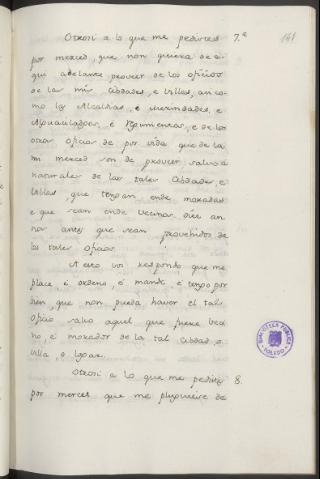 141
Otrosi a lo que me pedistes 7.ª
por merced, que non quiera de a-
qui adelante proveer de los oficios
de las mis Cibdades, e villas, asi co-
mo las Alcaldias, e merindades, e
Alguacilazgos, e Regimientos, e de los
otros oficios de por vida que de la
mi merced son de proveer, salvo a
naturales de las tales Cibdades, e
villas, que tengan ende moradas
e que sean ende vecinos diez an-
nos antes que sean proveidos de
los tales oficios.
A esto vos respondo que me
place é ordeno, é mando, é tengo por
bien, que non pueda haver el tal
oficio salvo aquel que fuere veci-
no, e morador de la tal Cibdad, o
villa, o logar.
Otrosi a lo que me pedistes 8.
por merced que me pluguiese de
BIBLIOTECA PÚBLICA
TOLEDO